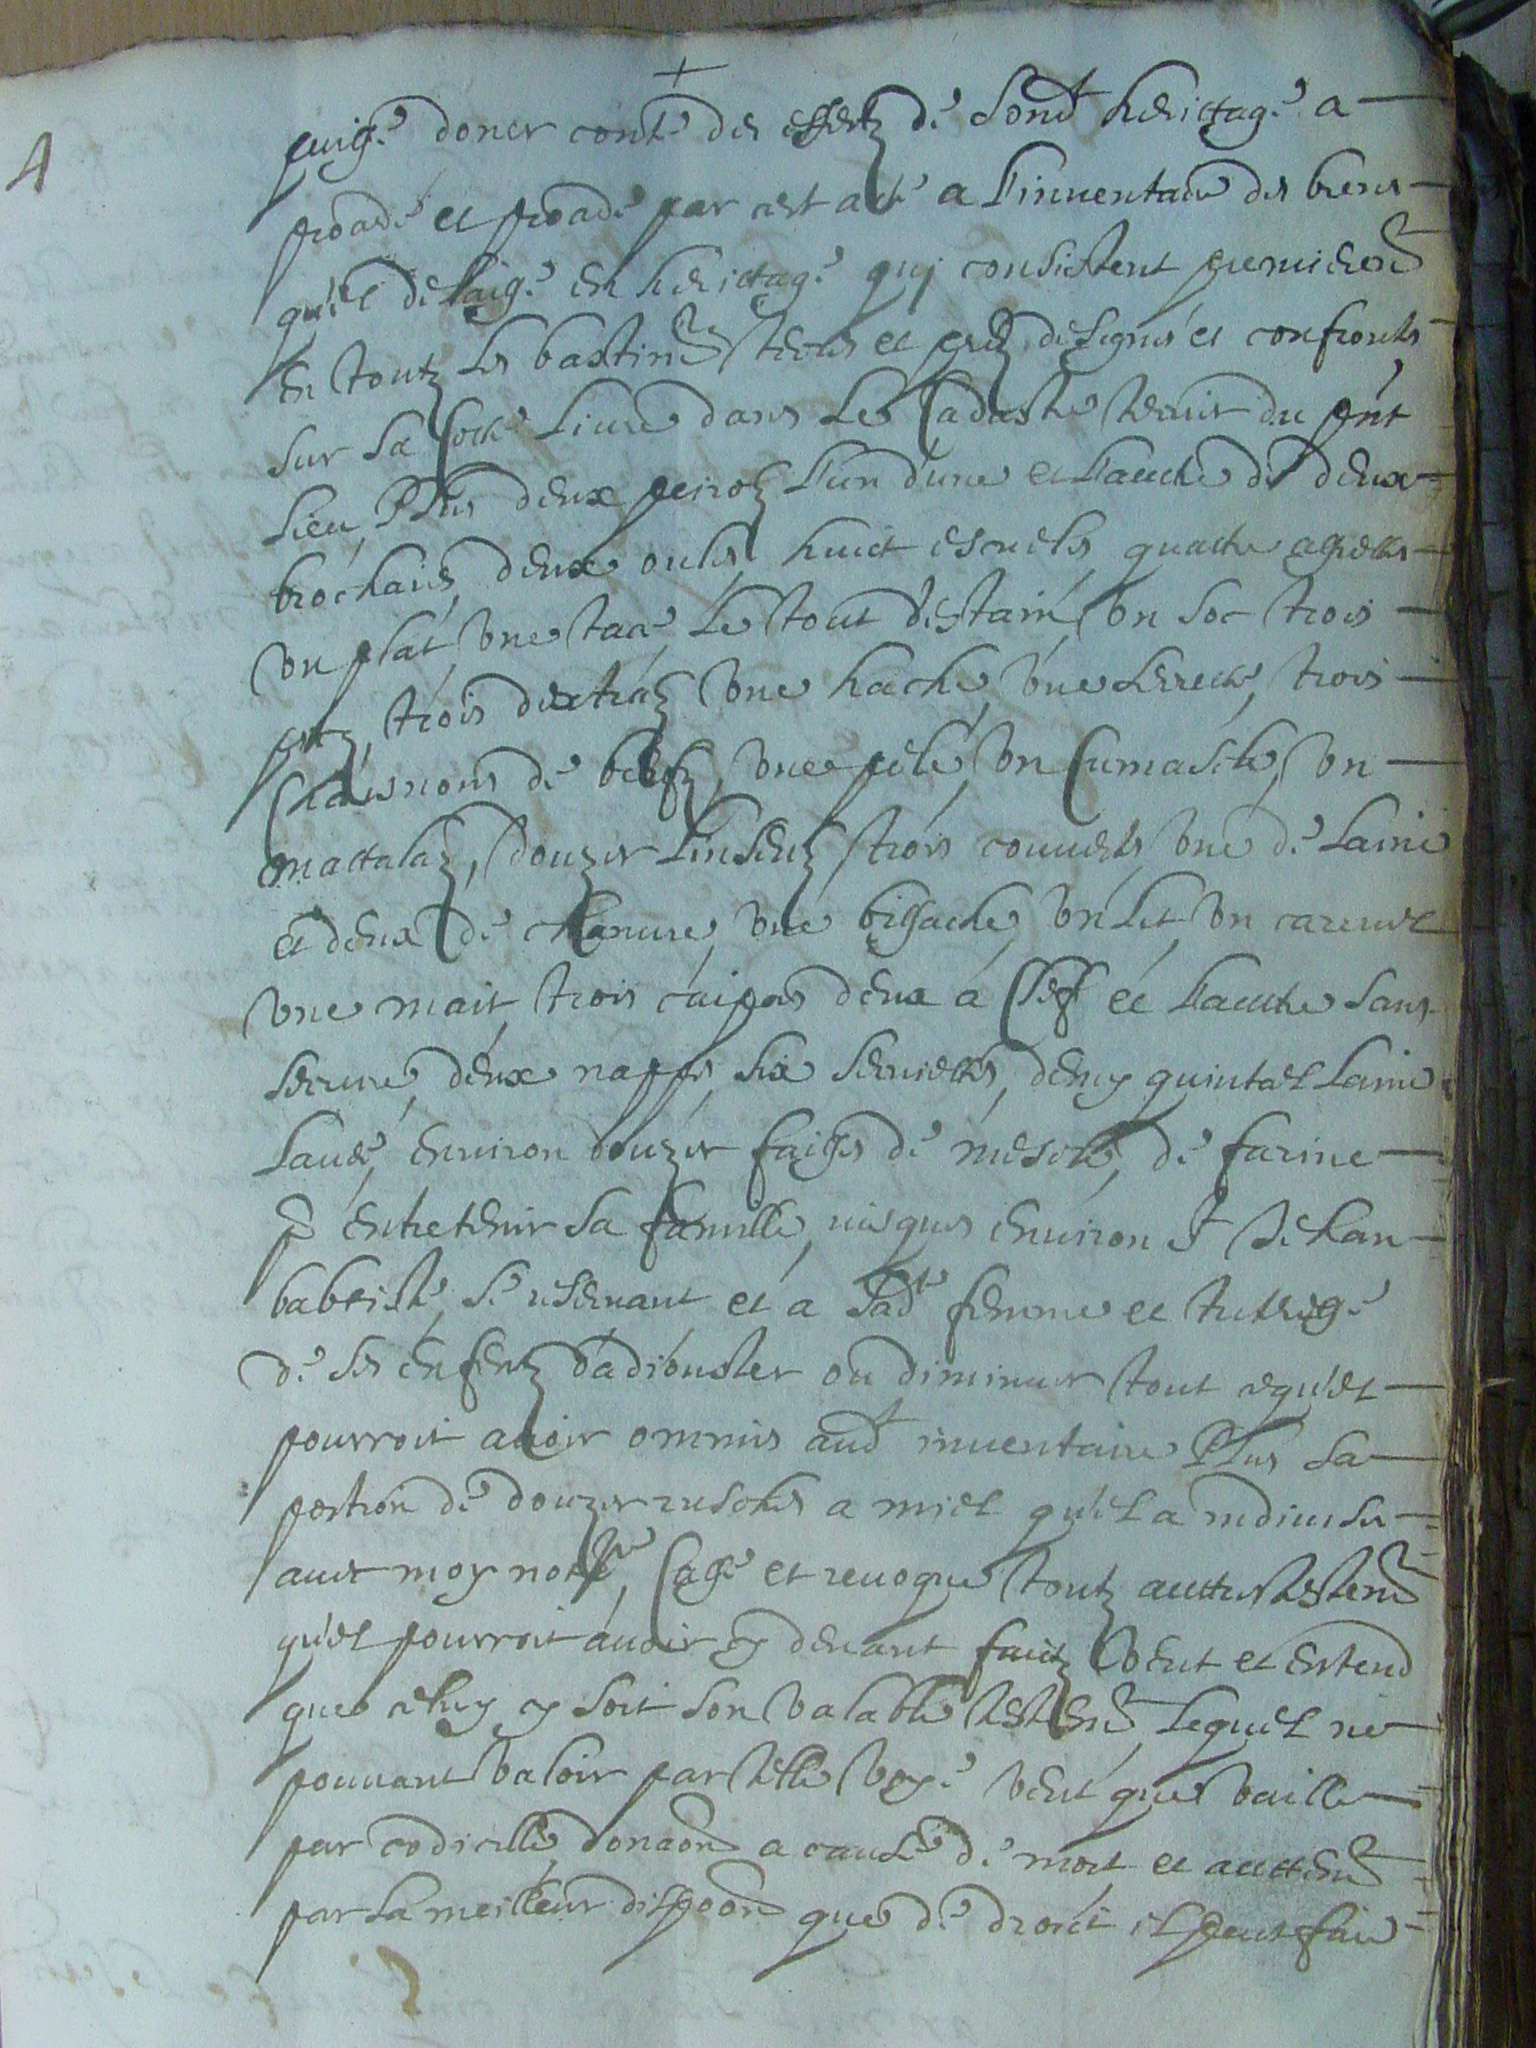 4
puisse doner conte des effectz de sond heritage a
procedé et procede par cest acte a l'inventaire des biens
qu'il delaisse en heritage quj consistent premieremt
en toutz les bastimtz terres et predz designes et confrontes
sur sa cotte livre dans le Cadastre terrier du pnt
lieu, Plus deux peirolz l'un d'une et l'autre de deux
brochaus, deux oules, huict escueles, quatre assiettes
un plat, une tace le tout d'estain, un soc trois
trois dextralz une hache, une serrette, trois
de beufz, une pele, un cumascle, un
mattalaz, douze linseulz trois couvertes, une de laine
et deux de chanvre, une bissache, un lit, un carevel
une mait, trois caipses deux a clef et l'autre sans
serrure, deux nappes, six serviettes, demy quintal laine
lavée, environ douze faisses de mescle, de farine
p entretenir sa famille, jusques environ St Jehan
babtiste, se reservant et a sadte femme et tutrisse
de ses enfentz d'adiouster ou diminuer tout cequ'il
pourroit avoir ommis aud inventaire Plus sa
portion de douze rusches a miel qu'il a indivises
avec moy notre, Casse et revoque toutz auttres testemtz
qu'il pourroit avoir cy devant faitz Veut et entend
que celuy cy soit son valable testemt, lequel ne
pouvant valoir par telle voye veut que vaille
par codicille, donaon a cause de mort et auttremt
par la meilleur dispoon que de droict il peut faire